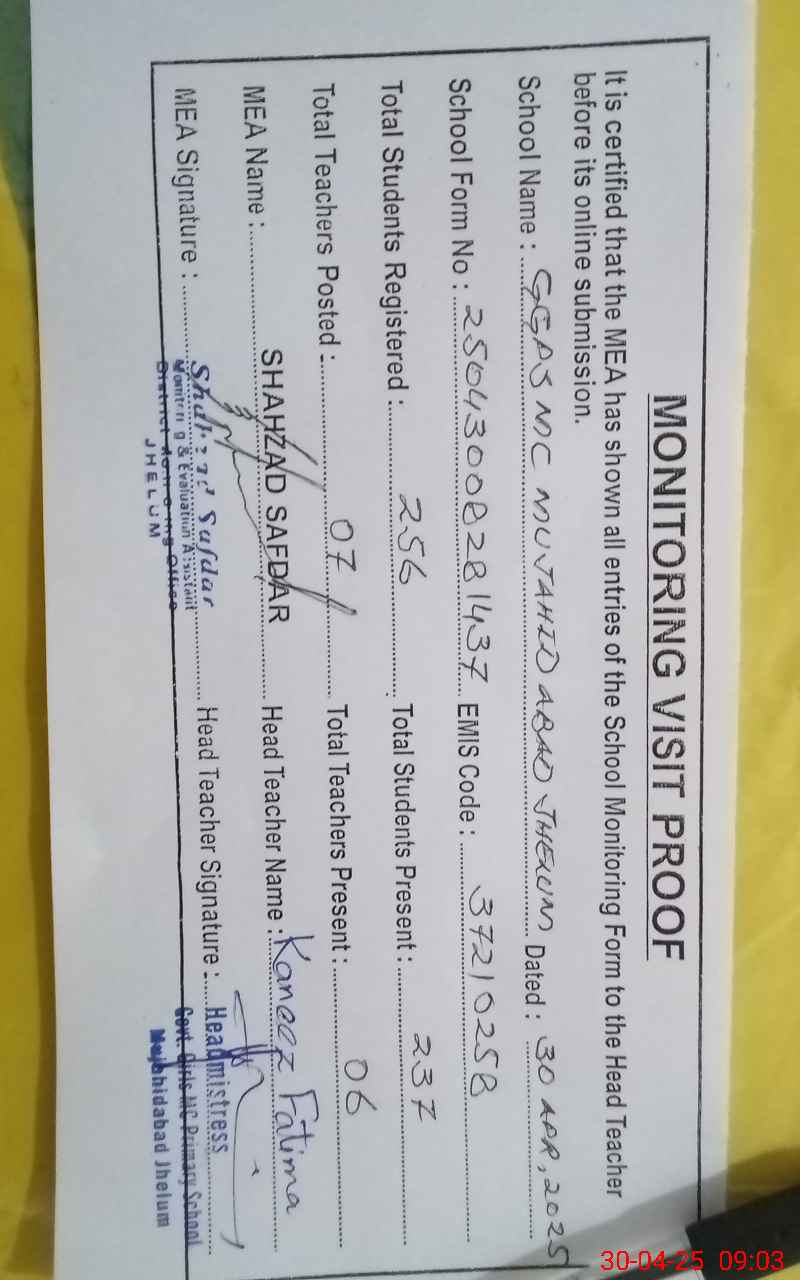 MONITORING VISIT PROOF
It is certified that the MEA has shown all entries of the School Monitoring Form to the Head Teacher
before its online submission.
School Name : GGPS MC MUJAHIDABAD JHELUM Dated : 30 APR, 2025
School Form No : 25043008281437 EMIS Code : 37210258
Total Students Registered : 256 Total Students Present : 237
Total Teachers Posted : 07 Total Teachers Present : 06
MEA Name : SHAHZAD SAFDAR Head Teacher Name : Kaneez Fatima
MEA Signature : Head Teacher Signature :
Shahzad Safdar
Monitoring & Evaluation Assistant
District Monitoring Office
JHELUM
Headmistress
Govt. Girls MC Primary School
Mujahidabad Jhelum
30-04-25 09:03